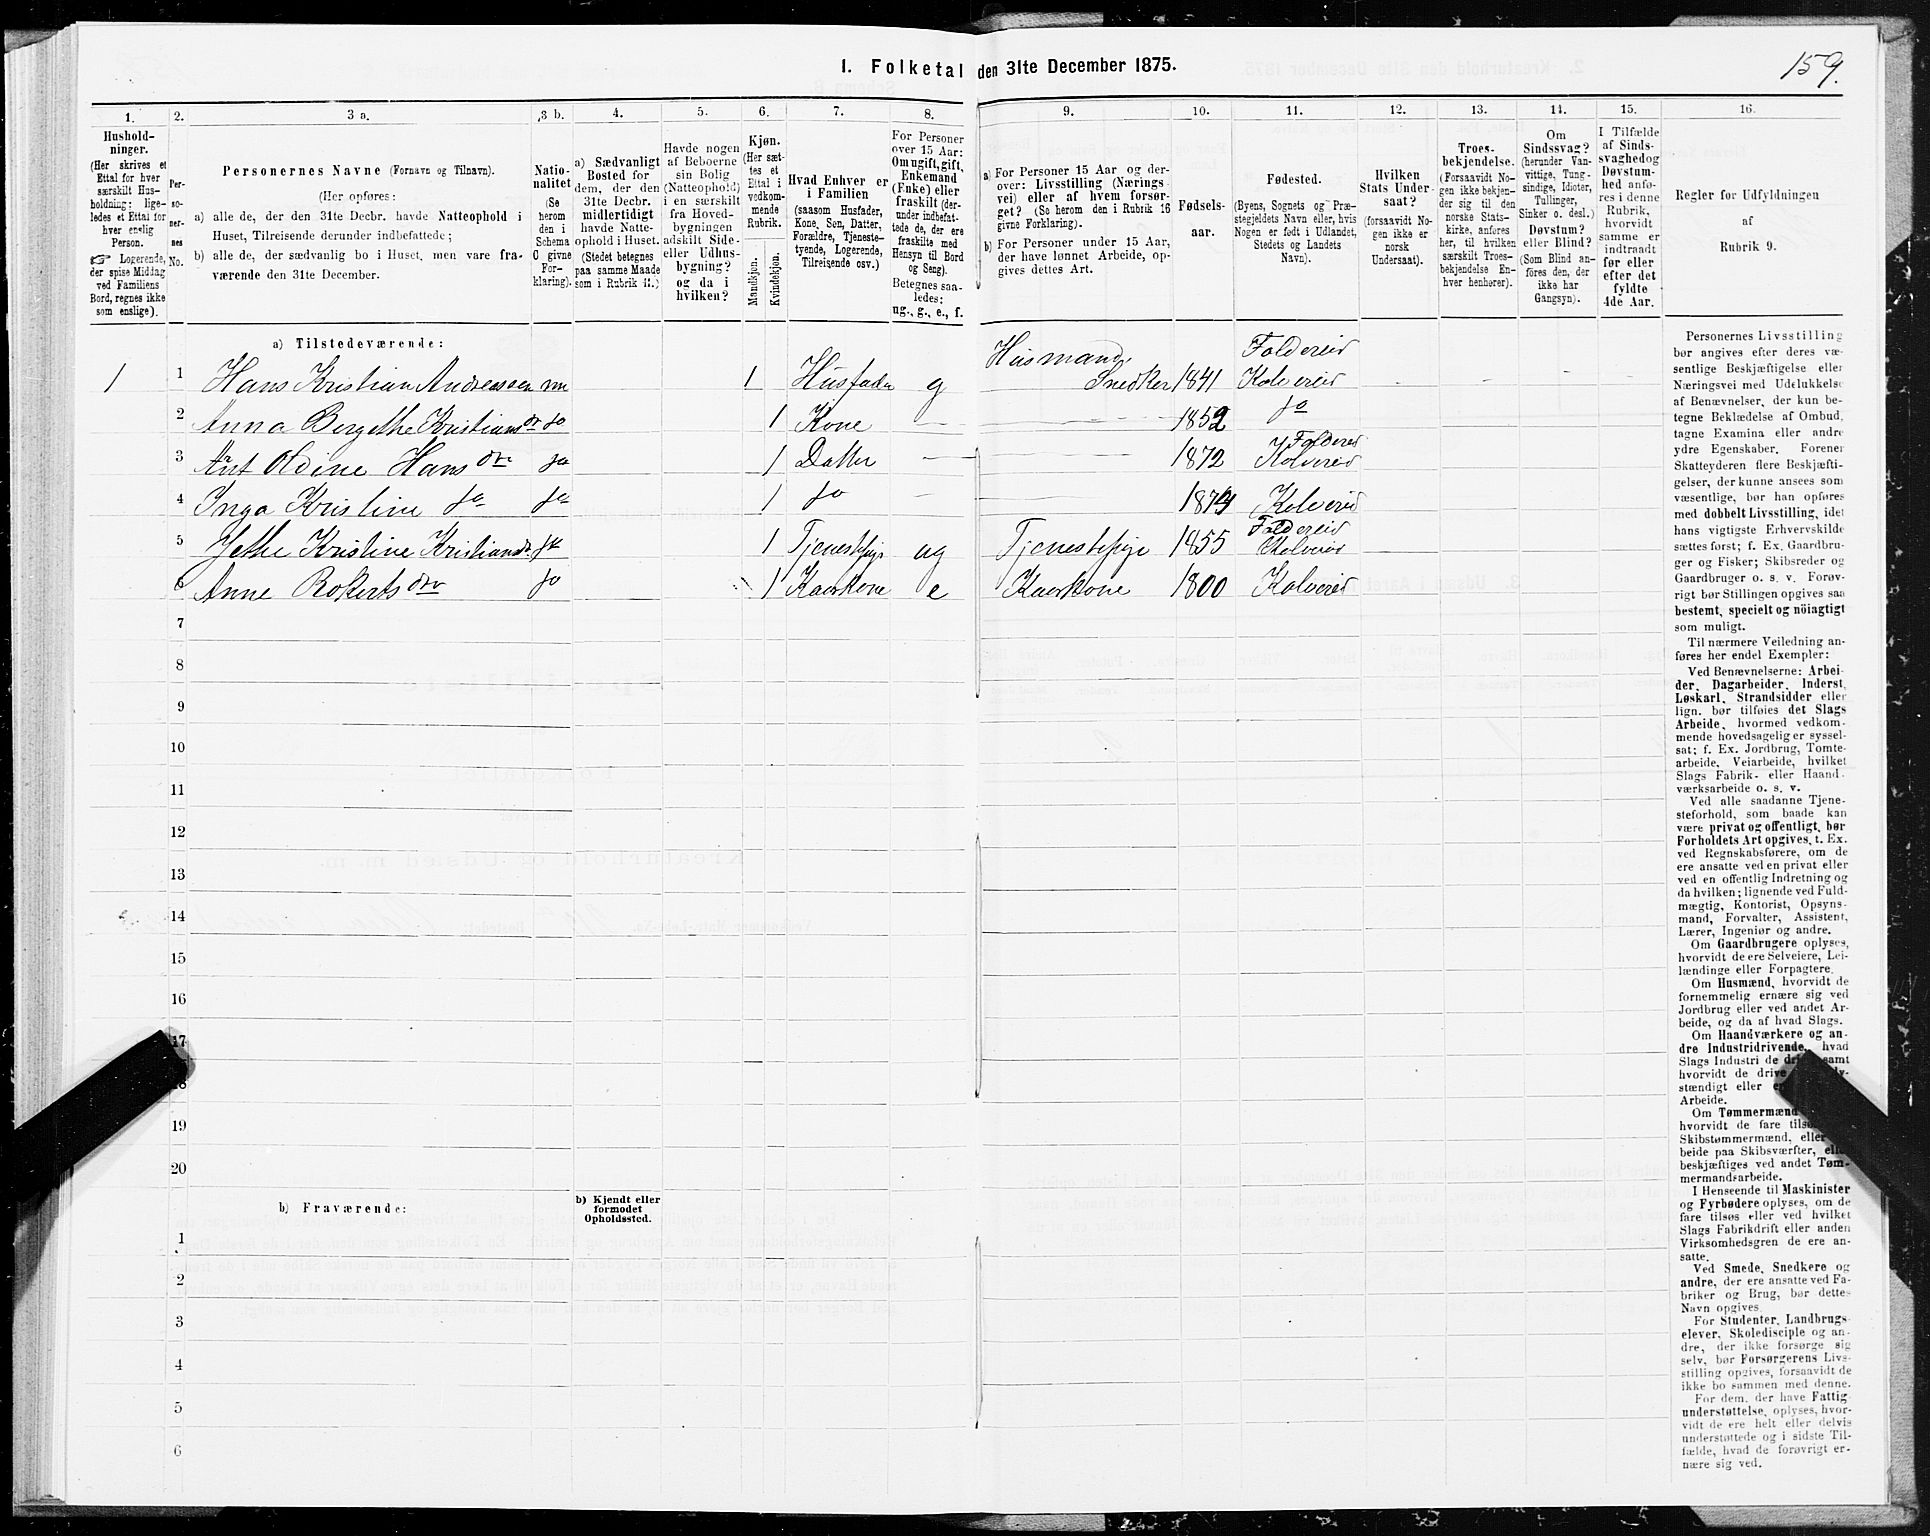 159.
1. Folketal den 31te December 1875.
1. 2. 3 a. 3 b. 4. 5. 6. 7. 8. 9. 10. 11. 12. 13. 14. 15. 16.
Hushold-
ninger.
(Her skrives et
Ettal for hver
særskilt Hus-
holdning: lige-
ledes et Ettal for
hver enslig
Person.
☞ Logerende,
der spise Middag
ved Familiens
Bord, regnes ikke
som enslige).
Per-
so-
ner-
nes
No.
Personernes Navne (Fornavn og Tilnavn).
(Her opføres:
a) alle de, der den 31te Decbr. havde Natteophold i
Huset, Tilreisende derunder indbefattede;
b) alle de, der sædvanlig bo i Huset, men vare fra-
værende den 31te December.
Natio-
nalitet
(Se
herom
den i
Schema
C givne
For-
klaring).
a) Sædvanligt
Bosted for
dem, der den
31te Decbr.
midlertidigt
havde Natte-
ophold i Huset.
(Stedet betegnes
paa samme Maade
som i Rubrik 11.)
Havde nogen
af Beboerne
sin Bolig
(Natteophold)
i en særskilt
fra Hoved-
bygningen
adskilt Side-
eller Udhus-
bygning?
og da i
hvilken?
Kjøn.
(Her sæt-
tes et
Ettal i
vedkom-
mende
Rubrik.
Mandkjøn.
Kvindekjøn.
Hvad Enhver er
i Familien
(saasom Husfader,
Kone, Søn, Datter,
Forældre, Tjeneste-
tyende, Logerende,
Tilreisende osv.)
For Personer
over 15 Aar:
Om ugift, gift,
Enkemand
(Enke) eller
fraskilt (der-
under indbefat-
tede de, der ere
fraskilte med
Hensyn til Bord
og Seng).
Betegnes saa-
ledes:
ug., g., e., f.
a) For Personer 15 Aar og der-
over: Livsstilling (Nærings-
vei) eller af hvem forsør-
get? (Se herom den i Rubrik 16
givne Forklaring).
b) For Personer under 15 Aar,
der have lønnet Arbeide, op-
gives dettes Art.
Fødsels-
aar.
Fødested.
(Byens, Sognets og Præ-
stegjeldets Navn eller, hvis
Nogen er født i Udlandet,
Stedets og Landets
Navn).
Hvilken
Stats Under-
saat?
(forsaavidt No-
gen ikke er
norsk
Undersaat).
Troes-
bekjendelse.
(Forsaavidt No-
gen ikke bekjen-
der sig til den
norske Stats-
kirke, anføres
her, til hvilken
særskilt Troes-
bekjendelse En-
hver henhører).
Om
Sindssvag?
(herunder Van-
vittige, Tung-
sindige, Idioter,
Tullinger,
Sinker o. desl.)
Døvstum?
eller Blind?
(Som Blind an-
føres den, der
ikke har
Gangsyn).
I Tilfælde
af Sinds-
svaghed og
Døvstum-
hed anfø-
res i denne
Rubrik,
hvorvidt
samme er
indtraadt
før eller
efter det
fyldte
4de Aar.
Regler for Udfyldningen
af
Rubrik 9.
a) Tilstedeværende:
1 1 Hans Kristian Andreassen nn 1 Husfader g Husmand Snedker 1841 Foldereid Kolvereid
2 Anna Bergethe Kristians dr do 1 Kone 1852 do
3 Ant Oldine Hans dtr do 1 Datter 1872 Foldereid Kolvereid
4 Inga Kristine do do 1 do 1874 Kolvereid
5 Jethe Kristine Kristiansdr do 1 Tjenestepige ug Tjenestepige 1855 Foldereid Kolvereid
6 Anne Rokerts dtr do 1 Kaarkone e Kaarkone 1800 Kolvereid
7
8
9
10
11
12
13
14
15
16
17
18
19
20
b) Fraværende:
b) Kjendt eller
formodet
Opholdssted.
1
2
3
4
5
6
Personernes Livsstilling
bør angives efter deres væ-
sentlige Beskjæftigelse eller
Næringsvei med Udelukkelse
af Benævnelser, der kun be-
tegne Beklædelse af Ombud,
tagne Examina eller andre
ydre Egenskaber. Forener
Skatteyderen flere Beskjæfti-
gelser, der kunne ansees som
væsentlige, bør han opføres
med dobbelt Livsstilling, idet
hans vigtigste Erhvervskilde
sættes først; f. Ex. Gaardbru-
ger og Fisker; Skibsreder og
Gaardbruger o. s. v. Forøv-
rigt bør Stillingen opgives saa
bestemt, specielt og nöiagtigt
som muligt.
Til nærmere Veiledning an-
føres her endel Exempler:
Ved Benævnelserne: Arbei-
der, Dagarbeider, Inderst,
Løskarl, Strandsidder eller
lign. bør tilføies det Slags
Arbeide, hvormed vedkom-
mende hovedsagelig er syssel-
sat; f. Ex. Jordbrug, Tomte-
arbeide, Veiarbeide, hvilket
Slags Fabrik- eller Haand-
værksarbeide o. s. v.
Ved alle saadanne Tjene-
steforhold, som baade kan
være privat og offentligt, bør
Forholdets Art opgives, t. Ex.
ved Regnskabsførere, om de
ere ansatte ved en privat eller
ved en offentlig Indretning og
da hvilken; lignende ved Fuld-
mægtig, Kontorist, Opsyns-
mand, Forvalter, Assistent,
Lærer, Ingeniør og andre.
Om Gaardbrugere oplyses,
hvorvidt de ere Selveiere, Lei-
lændinge eller Forpagtere.
Om Husmænd, hvorvidt de
fornemmelig ernære sig ved
Jordbrug eller ved andet Ar-
beide, og da af hvad Slags.
Om Haandværkere og an-
dre Industridrivende, hvad
Slags Industri de samt
hvorvidt de drive
stændigt eller
Arbeide.
Om Tømmermænd
hvorvidt de fare
Skibstømmermænd, eller
beide paa Skibsværfter,
beskjæftiges ved andet Tøm-
mermandsarbeide.
I Henseende til Maskinister
og Fyrbødere oplyses, om de
fare tilsøs eller ved hvilket
Slags Fabrikdrift eller anden
Virksomhedsgren de ere an-
satte.
Ved Smede, Snedkere og
andre, der ere ansatte ved Fa-
briker og Brug, bør dettes
Navn opgives.
For Studenter, Landbrugs-
elever, Skoledisciple og an-
dre, der ikke forsørge sig
selv, bør Forsørgerens Livs-
stilling opgives, forsaavidt de
ikke bo sammen med denne.
For dem, der have Fattig-
understøttelse, oplyses, hvor-
vidt de ere helt eller delvis
understøttede og i sidste Til-
fælde, hvad de forøvrigt er-
nære sig ved.